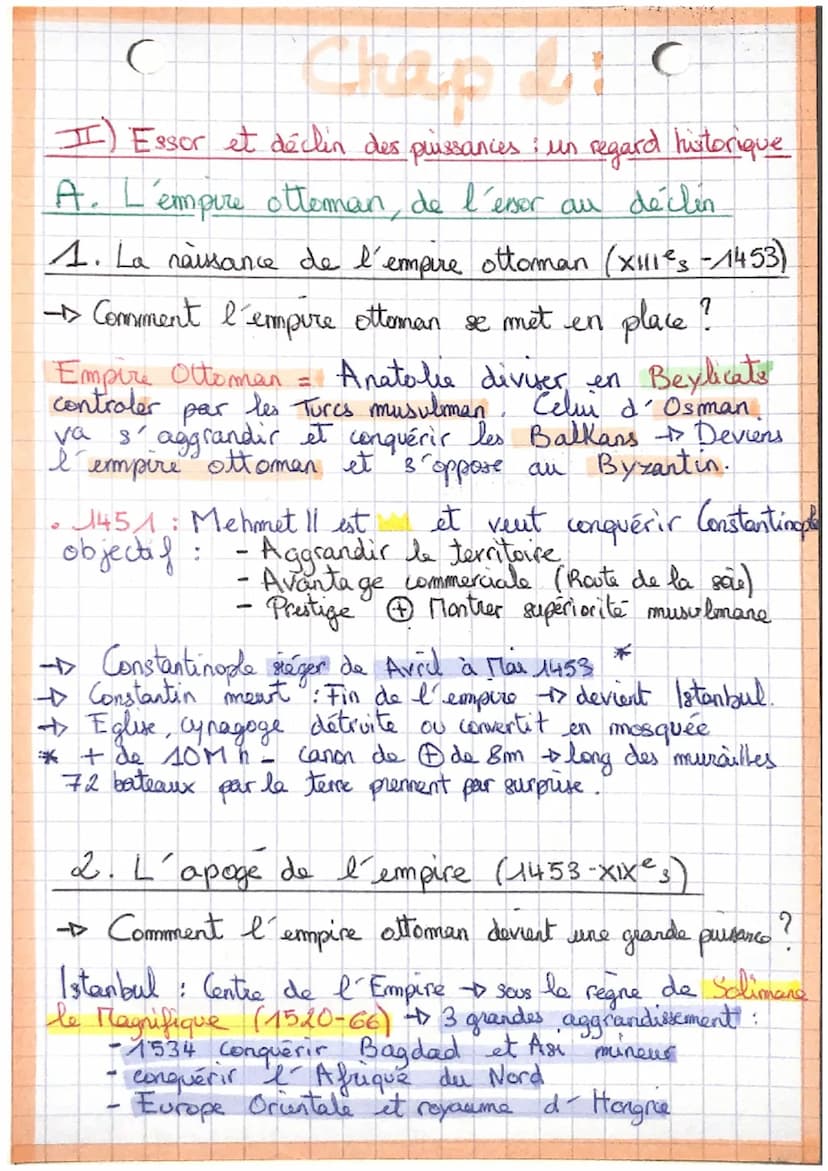 Chap 2 :
II) Essor et déclin des puissances : un regard historique
A. L'empire ottoman, de l'essor au déclin
1. La naissance de l'empire ottoman (XIIIe s - 1453)
→ Comment l'empire ottoman se met en place ?
Empire Ottoman = Anatolie diviser en Beylicats
controler par les Turcs musulman. Celui d'Osman
va s'aggrandir et conquérir les Balkans → Deviens
l'empire ottoman et s'oppose au Byzantin.
• 1451 : Mehmet II est 👑 et veut conquérir Constantinople
objectif : - Aggrandir le territoire
- Avantage commerciale (Route de la soie)
- Prestige ⊕ Montrer supériorité musulmane
→ Constantinople siéger de Avril à Mai 1453 *
→ Constantin meurt : Fin de l'empire → devient Istanbul.
→ Eglise, cynagoge détruite ou convertit en mosquée
* + de 10M h - canon de ⊕ de 8m → long des murailles
72 bateaux par la terre prennent par surprise.
2. L'apogé de l'empire (1453-XIXe s)
→ Comment l'empire ottoman devient une grande puissance ?
Istanbul : Centre de l'Empire → sous le règne de Solimane
le Magnifique (1520-66) → 3 grandes aggrandissement :
- 1534 conquérir Bagdad et Asi mineur
- conquérir l'Afrique du Nord
- Europe Orientale et royaume d'Hongrie